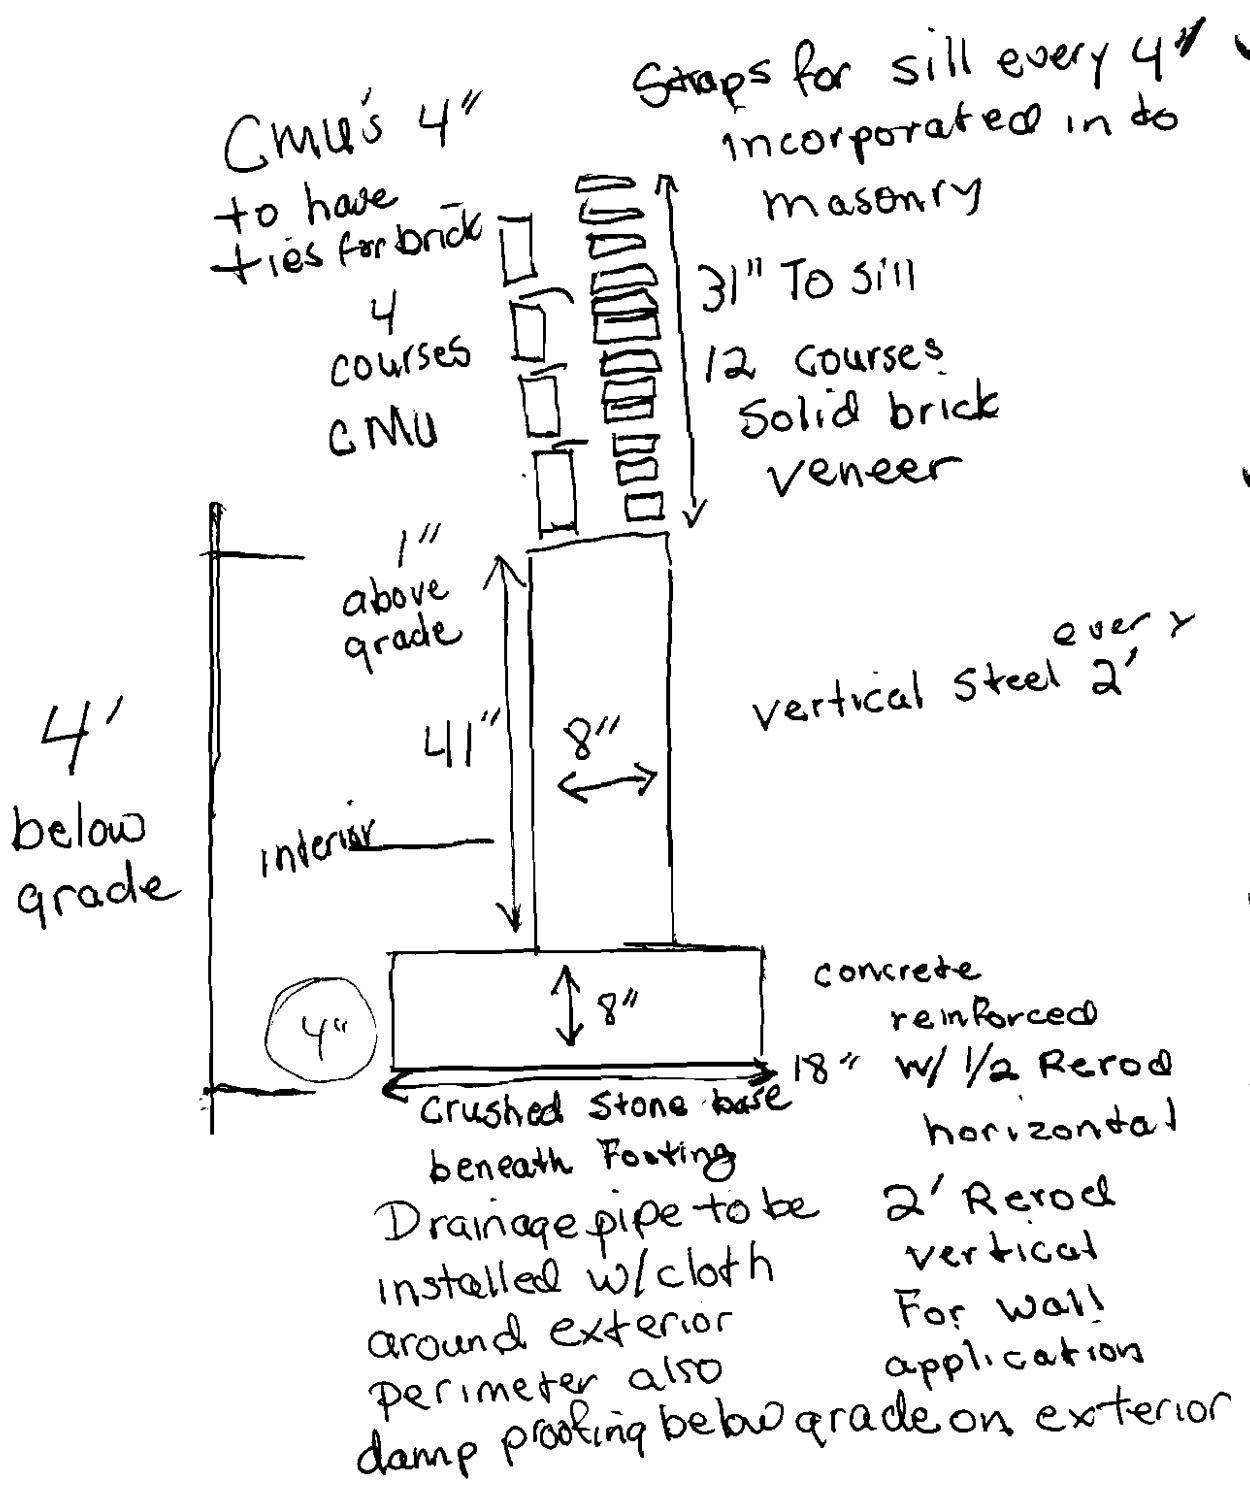 Straps for sill every 4"
incorporated in to
masonry
CMU's 4"
to have
ties for brick
4
courses
CMU
31" To Sill
12 courses
Solid brick
veneer
1"
above
grade
41"
8"
every
vertical Steel 2'
4'
below
grade
interior
4"
8"
18"
concrete
reinforced
w/ 1/2 Rerod
horizontal
2' Rerod
vertical
For wall
application
Crushed Stone base
beneath Footing
Drainage pipe to be
installed w/cloth
around exterior
perimeter also
damp proofing below grade on exterior